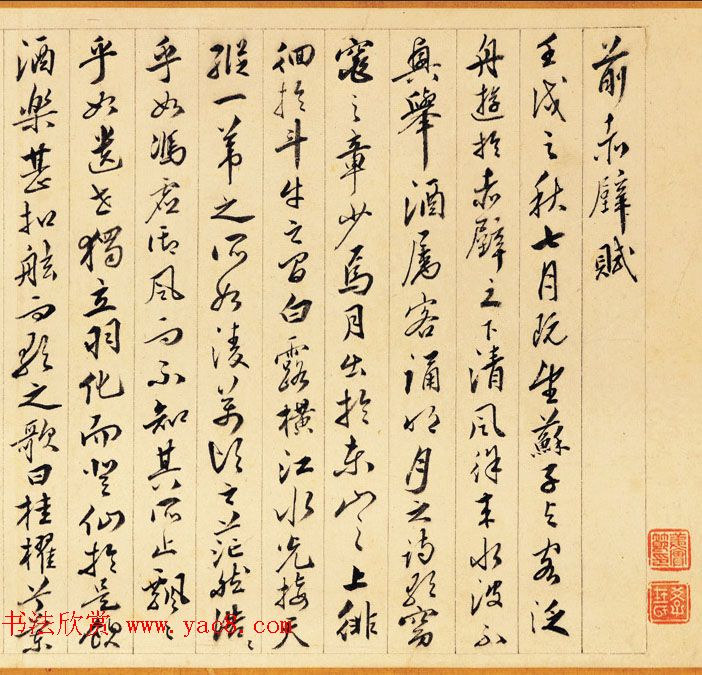 前赤壁賦
壬戌之秋七月既望蘇子与客泛
舟遊於赤壁之下清風徐来水波不
興舉酒属客誦明月之詩歌窈
窕之章少焉月出於東山之上徘
徊於斗牛之間白露橫江水光接天
縱一葦之所如凌萬頃之茫然浩〻
乎如馮虛御風而不知其所止飄〻
乎如遺世獨立羽化而登仙於是飲
酒樂甚扣舷而歌之歌曰桂櫂兮蘭
书法欣赏 www.yac8.com